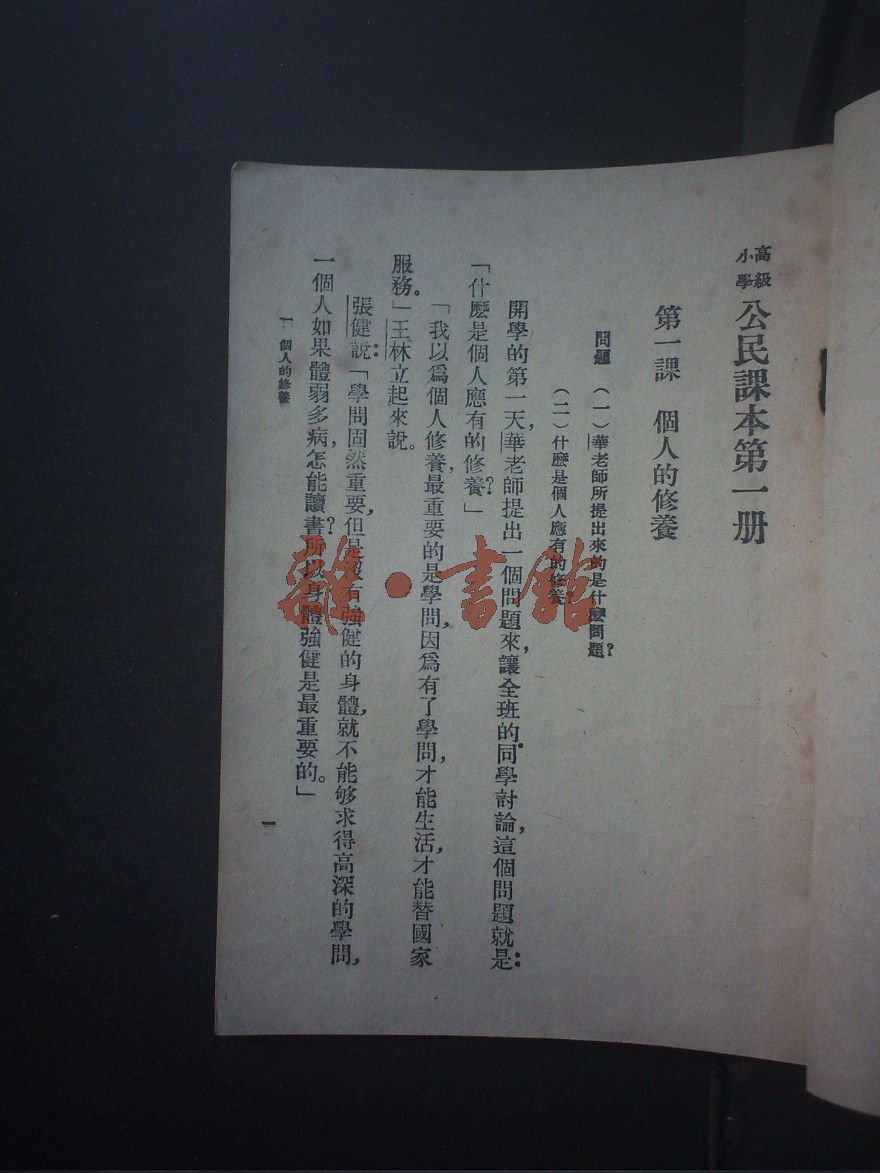 高級小學 公民課本第一册
第一課 個人的修養
問題 (一)華老師所提出來的是什麽問題?
(二)什麽是個人應有的修養
開學的第一天,華老師提出一個問題來,讓全班的同學討論,這個問題就是:
「什麽是個人應有的修養?」
「我以爲個人修養,最重要的是學問,因爲有了學問,才能生活,才能替國家
服務。」王林立起來說。
張健說:「學問固然重要,但是沒有強健的身體,就不能够求得高深的學問,
一個人如果體弱多病,怎能讀書?所以身體強健是最重要的。」
一 個人的修養
一
雜·書館